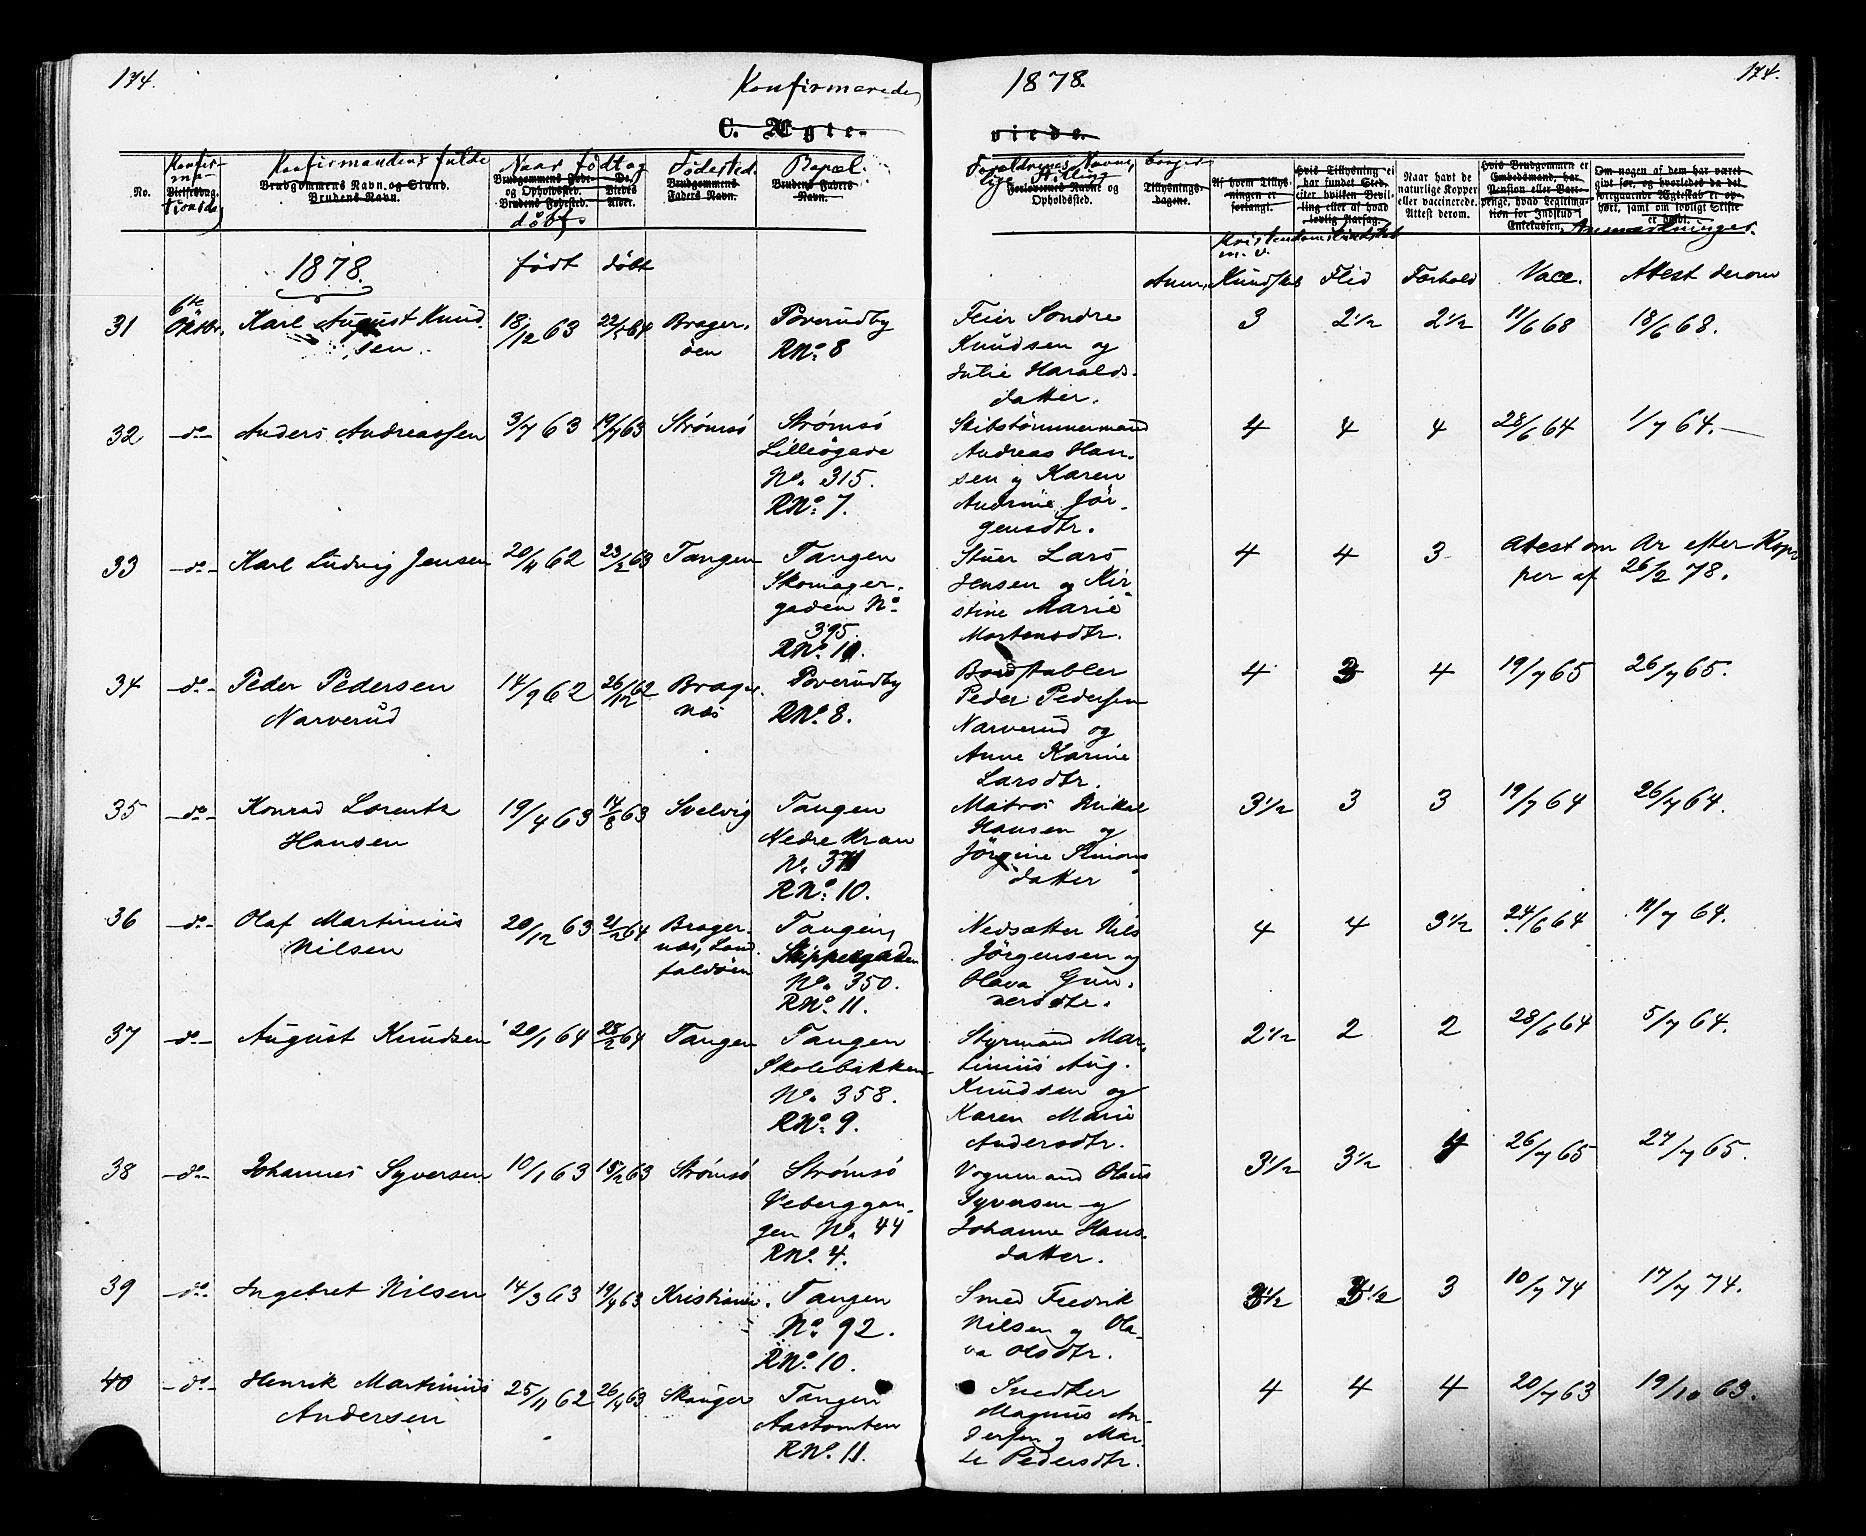 174.
Konfirmerede
1878.
174.
C. Ægte-
viede.
No.
Konfirmandens fulde
Naar født og døbt
Fødested.
Brudgommens Navn og Stand.
Brudens Navn.
Brudgommens Faders Navn.
Brudens Faders Navn.
Forlovernes Navne og Opholdsted.
Tillysningsdagene.
Af hvem Tillysningen er forlangt.
Naar havt de naturlige Kopper eller vaccinerede. Attest derom.
Anmærkninger.
1878.
født døbt
Anm. Kundskab Flid Forhold Vacc. Attest derom
31 6te Oktbr. Karl August Knudsen. 18/12 63 22/5 64 Bragerøen Poverudby RNo. 8
Feier Sondre Knudsen og Julie Haraldsdatter. 3 2 1/2 2 1/2 11/6 68 18/6 68.
32 -do- Anders Andreassen 3/7 63 19/7 63 Strømsø Strømsø Lilleøgade No. 315. RNo. 7.
Skibstømmermand Andreas Hansen og Karen Andrine Jörgensdtr. 4 4 4 28/6 64 1/7 64.
33 -do- Karl Ludvig Jensen 20/11 62 23/2 63 Tangen Tangen Skomagergaden No 395. RNo. 11.
Stuer Lars Jensen og Kirstine Marie Mortensdtr. 4 4 3 Atest om Ar efter Kopper af 26/2 78.
34 -do- Peder Pedersen Narverud 14/9 62 26/12 62 Bragernæs Poverudby RNo. 8.
Bordstabler Peder Pedersen Narverud og Anne Karine Larsdtr. 4 3 4 19/7 65 26/7 65.
35 -do- Konrad Lorents Hansen 19/4 63 14/8 63 Svelvig Tangen Nedre Kran No. 371 RNo. 10.
Matros Mikal Hansen og Jörgine Simonsdatter 3 1/2 3 3 19/7 64 26/7 64.
36 -do- Olaf Martinius Nilsen 20/12 63 21/2 64 Bragernæs, Landfaldøen Tangen, Skippergaden No. 350. RNo. 11.
Nedsætter Nils Jörgensen og Olava Gunnersdtr. 4 4 3 1/2 24/6 64 11/7 64.
37 -do- August Knudsen 20/1 64 28/2 64 Tangen Tangen Skolebakken No. 358. RNo. 9.
Styrmand Martinius Aug. Knudsen og Karen Marie Andersdtr. 2 1/2 2 2 28/6 64 5/7 64.
38 -do- Johannes Syversen 10/1 63 15/2 63 Strømsø Strømsø Veberggangen No. 44 RNo. 4.
Vognmand Olaus Syversen og Johanne Hansdatter. 3 1/2 3 1/2 4 26/7 65 27/7 65.
39 -do- Ingebret Nilsen 14/3 63 19/4 63 Kristiania. Tangen No. 92. RNo. 10.
Smed Fredrik Nilsen og Olava Olsdtr. 3 1/2 3 1/2 3 10/7 74 17/7 74.
40 -do- Henrik Martinius Andersen 25/11 62 26/4 63 Skouger Tangen Aastomten RNo. 11.
Snedker Magnus Andersen og Marte Pedersdtr. 4 4 4 20/7 63 19/10 63.